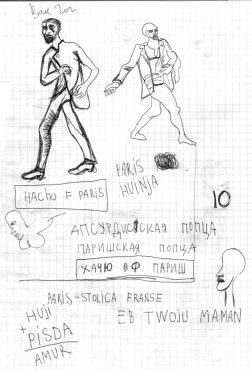 PARIS
HUINJA
HACHU F PARIS
10
АПСУРДИСТСКАЯ ПОПЦА
ПАРИШСКАЯ ПОПЦА
ХАЧЮ В Ф ПАРИШ
PARIS-STOLICA FRANSE
HUJI
+
PISDA
AMUR
EB TWOJU MAMAN